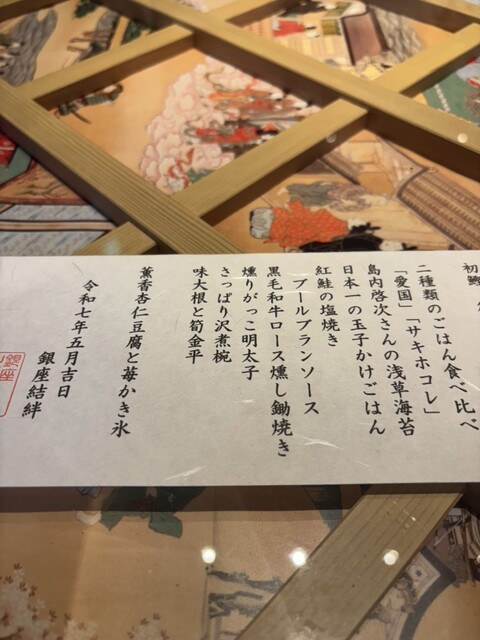 初鰹
二種類のごはん食べ比べ
「愛国」「サキホコレ」
島内啓次さんの浅草海苔
日本一の玉子かけごはん
紅鮭の塩焼き
ブールブランソース
黒毛和牛ロース燻し鋤焼き
燻りがっこ明太子
さっぱり沢煮椀
味大根と筍金平
薫香杏仁豆腐と苺かき氷
令和七年五月吉日
銀座結絆
銀座